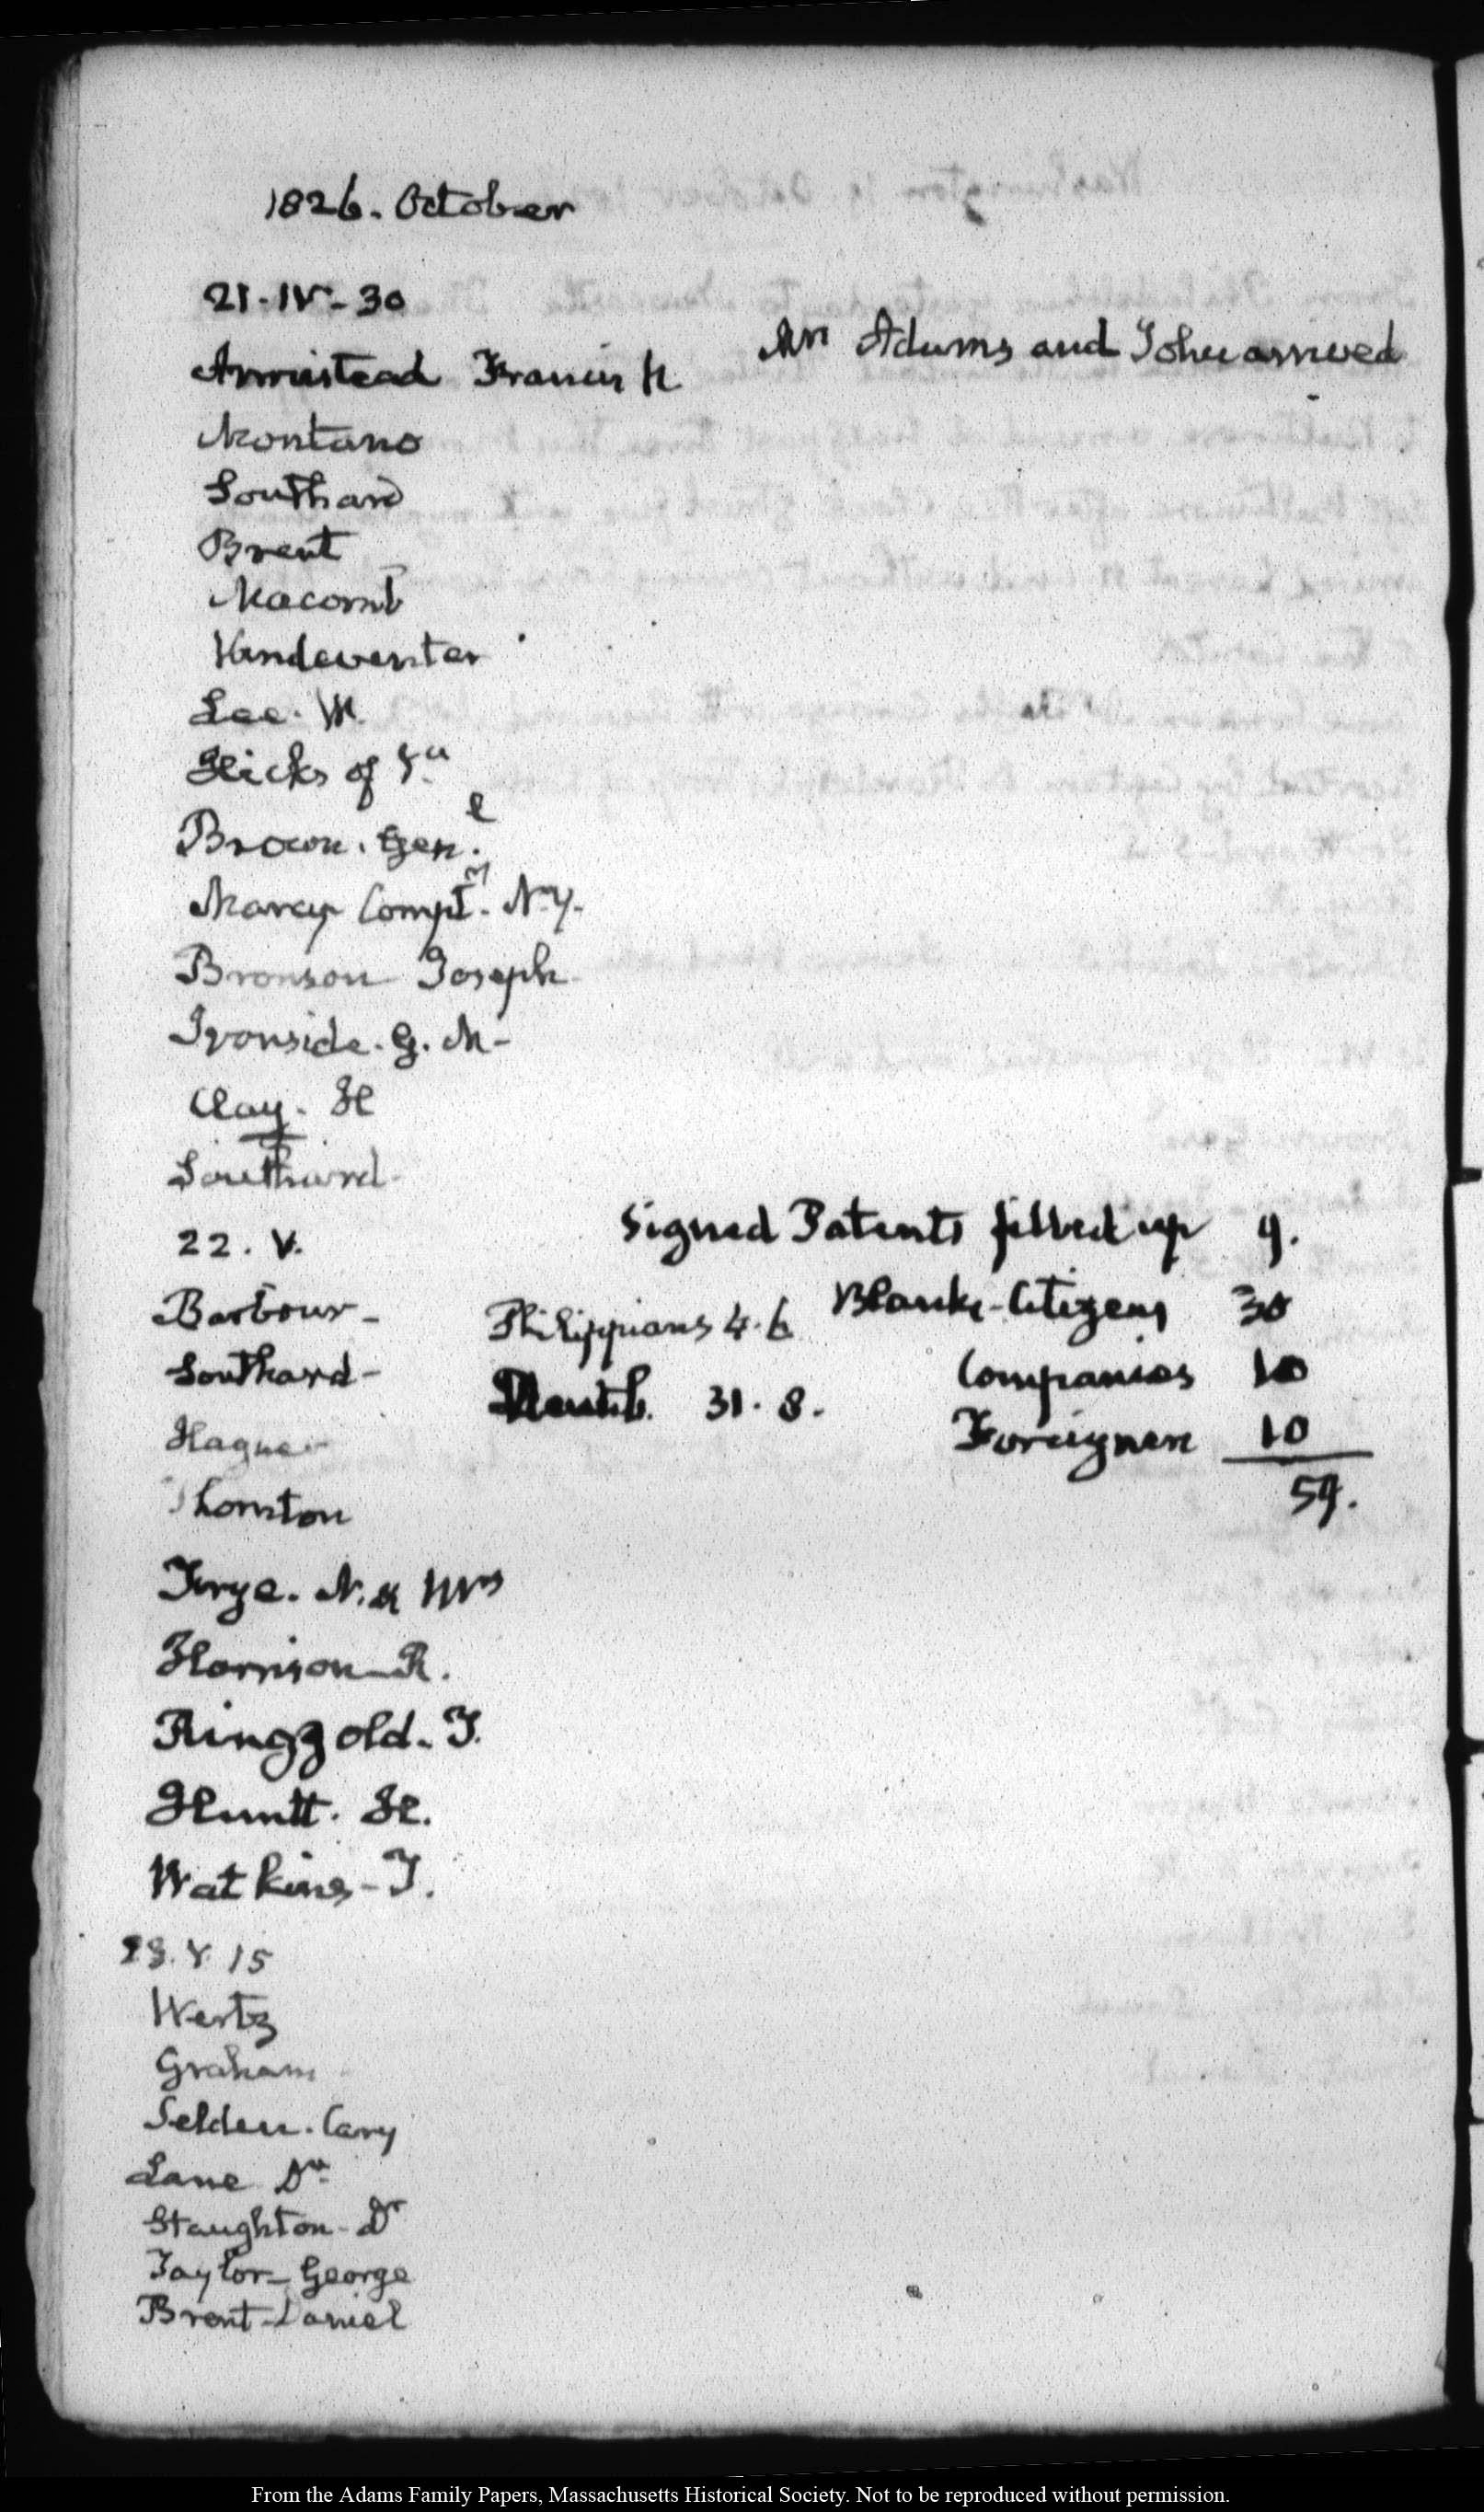 1826. October
21. IV-30
Armistead Francis
Mrs Adams and John arrived
Montano
Southard
Brent
Macomb
Vandeventer
Lee. W.
Hicks of
Brown. Genl.
Marcy Comptr. N.Y.
Bronson Joseph
Ironside. G. M-
Clay. H
Southard-
22. V.
Signed Patents filled up 9.
Barbour-
Philippians 4. 6
Blanks-Citizens 30
Southard-
31. 8.
Companies 10
Hague-
Foreigners 10
59.
Thornton
Frye. N. & Mrs
Harrison-R.
Ringgold. T.
Huntt. H.
Watkins-T.
23. V. 15
Wertz
Graham
Selden. Cary
Lane
Staughton-Dr
Taylor-George
Brent-Daniel
From the Adams Family Papers, Massachusetts Historical Society. Not to be reproduced without permission.